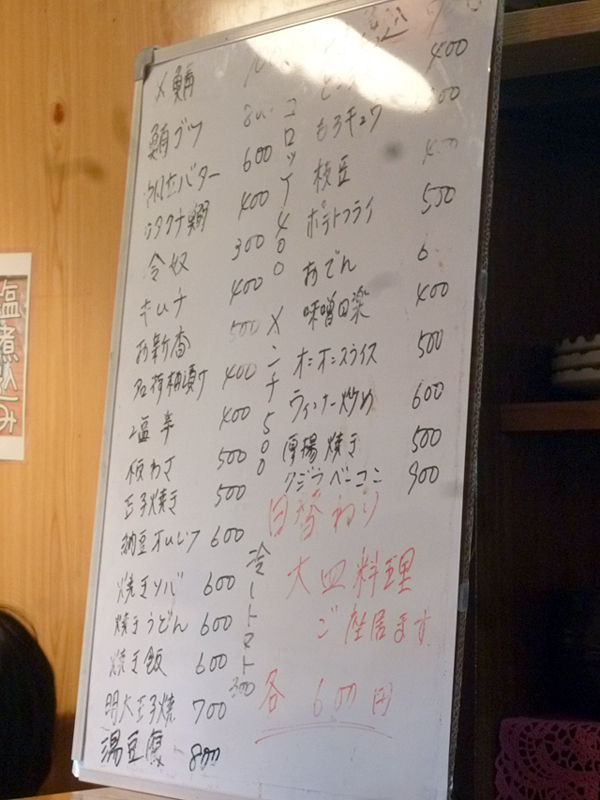 〆鯖
鮪ブツ 800
バター 600
400
冷奴 300
キムチ 400
お新香 500
400
塩辛 400
板わさ 500
玉子焼き 500
納豆オムレツ 600
焼きソバ 600
焼きうどん 600
焼き飯 600
明太玉子焼 700
湯豆腐 800
コロッケ400
メンチ500
冷ートマト300
400
もろキュウ
枝豆
ポテトフライ 500
おでん 6
味噌田楽 400
オニオンスライス 500
ウィンナー炒め 600
厚揚焼き 500
クジラベーコン 900
日替わり
大皿料理
ご座居ます
各 600円
塩煮込み